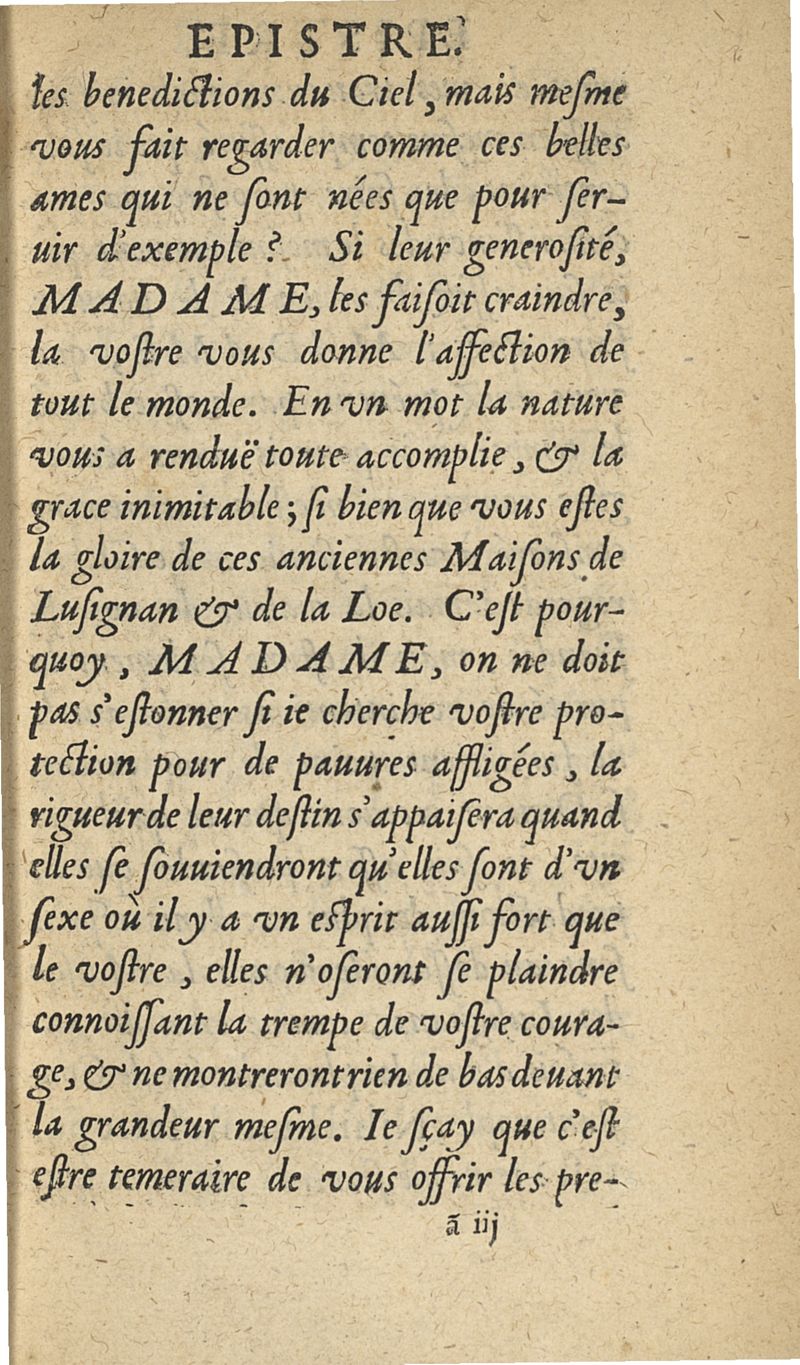 EPISTRE.
les benedictions du Ciel, mais meſme
vous fait regarder comme ces belles
ames qui ne ſont nées que pour ſer-
uir d'exemple ? Si leur generoſité,
MADAME, les faiſoit craindre,
la voſtre vous donne l'affection de
tout le monde. En vn mot la nature
vous a renduë toute accomplie, & la
grace inimitable ; ſi bien que vous eſtes
la gloire de ces anciennes Maiſons de
Luſignan & de la Loe. C'eſt pour-
quoy, MADAME, on ne doit
pas s'eſtonner ſi ie cherche voſtre pro-
tection pour de pauures affligées, la
rigueur de leur deſtin s'appaiſera quand
elles ſe ſouuiendront qu'elles ſont d'vn
ſexe où il y a vn eſprit auſſi fort que
le voſtre, elles n'oſeront ſe plaindre
connoiſſant la trempe de voſtre coura-
ge, & ne montreront rien de bas deuant
la grandeur meſme. Ie ſçay que c'eſt
eſtre temeraire de vous offrir les pre-
ã iij